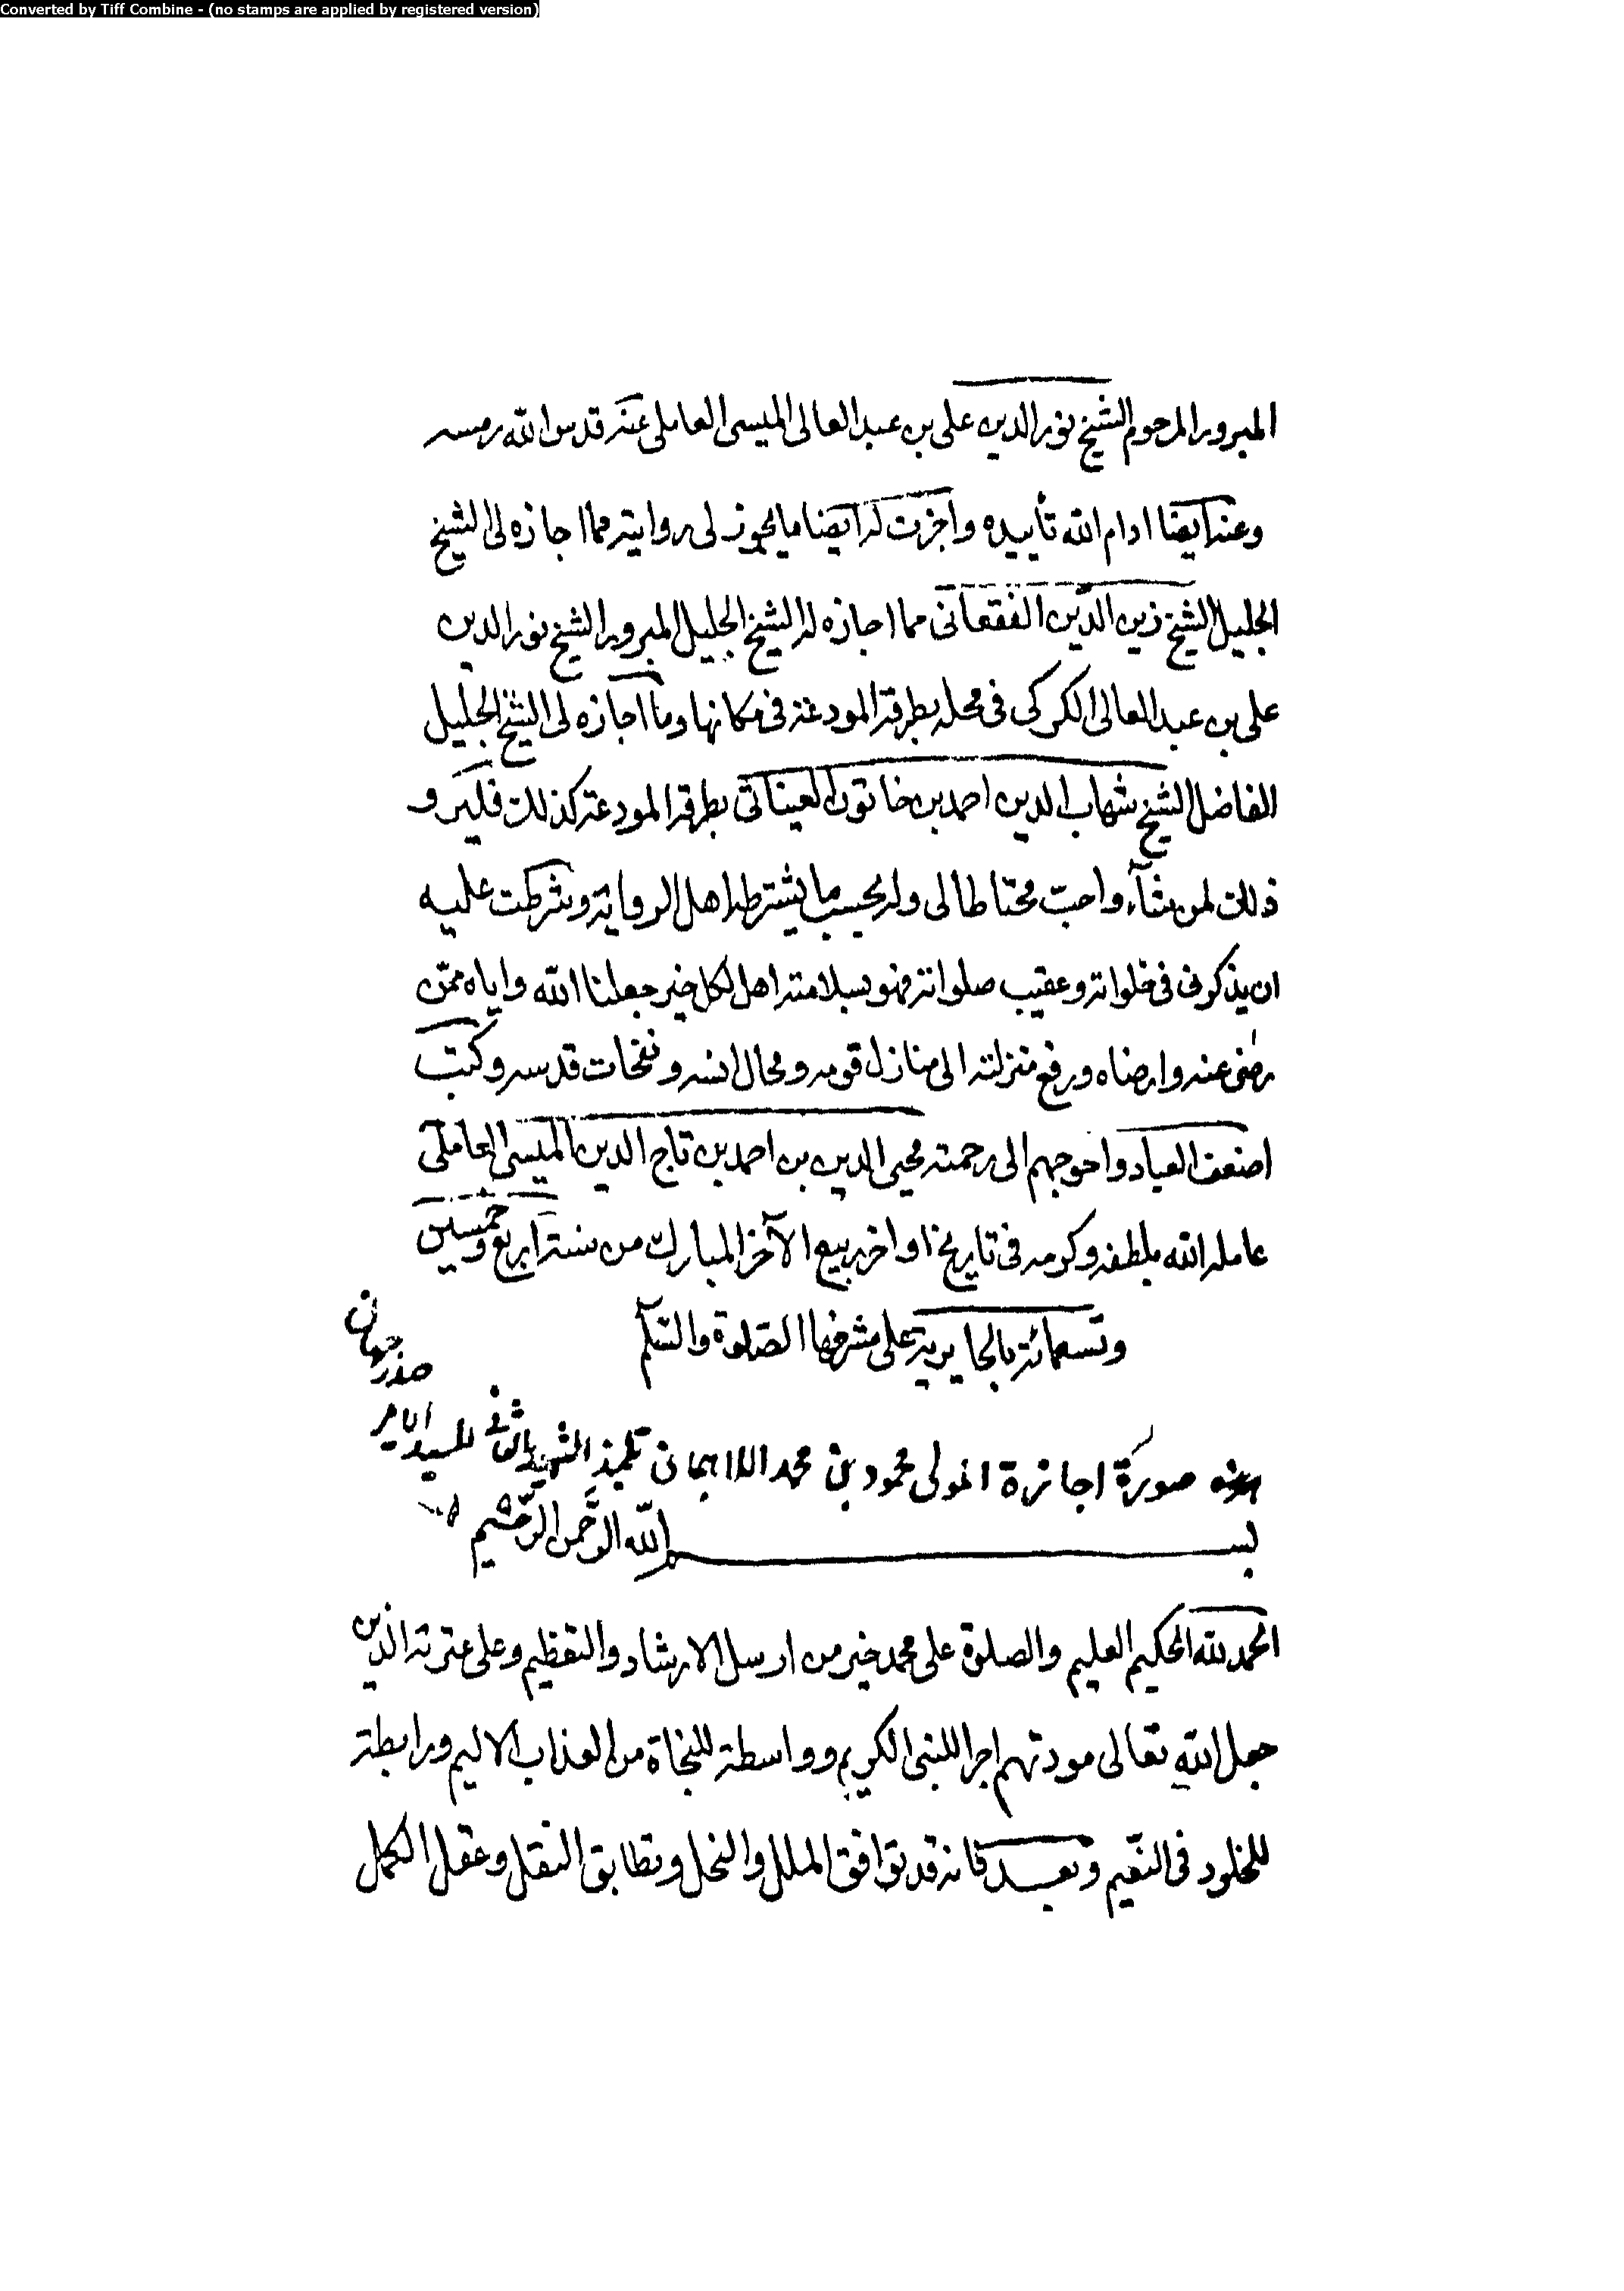 Converted by Tiff Combine - (no stamps are applied by registered version)
المبرور المرحوم الشيخ نور الدين علي بن عبد العالي الميسي العاملي عنه قدس الله رمسه
وعنه ايضا ادام الله تأييده واجزت له ايضا ما يجوز لى روايته مما اجازه لى الشيخ
الجليل الشيخ زين الدين الفقعانى مما اجازه له الشيخ الجليل المبرور الشيخ نور الدين
على بن عبد العالى الكركى فى محله بطرقه المودعة فى مكانها وما اجازه لى الشيخ الجليل
الفاضل الشيخ شهاب الدين احمد بن خاتون العيناثى بطرقه المودعة كذلك فليرو
ذلك لمن شآء واحبّ محتاطا لى وله بحسب ما يشترطه اهل الرواية وشرطت عليه
ان يذكرنى فى خلواته وعقيب صلواته فهو بسلامته اهل لكل خير جعلنا الله واياه ممّن
رضى عنه وارضاه ورفع منزلته الى منازل قومه ومحال انسه ونفحات قدسه وكتب
اضعف العباد واحوجهم الى رحمته محيى الدين بن احمد بن تاج الدين الميسى العاملى
عامله الله بلطفه وكرمه فى تاريخ اواخر ربيع الآخر المبارك من سنة اربع وخمسين
وتسعمائة بالحايرية على مشرفها الصلوة والسلم
صورة اجازة المولى محمود بن محمد اللاهجانى تلميذ الشهيد الثانى للسيد الامير
صدر جهان
بسم الله الرَّحمن الرّحيم
الحمد لله الحكيم العليم والصلوة على محمد خير من ارسل للارشاد والتعظيم وعلى عترته الذين
جعل الله تعالى مودتهم اجرا للنبى الكريم وواسطة للنجاة من العذاب الاليم ورابطة
للخلود فى النّعيم وبعد فانه قد توافق الملل والنحل وتطابق النقل وعقل الكمل